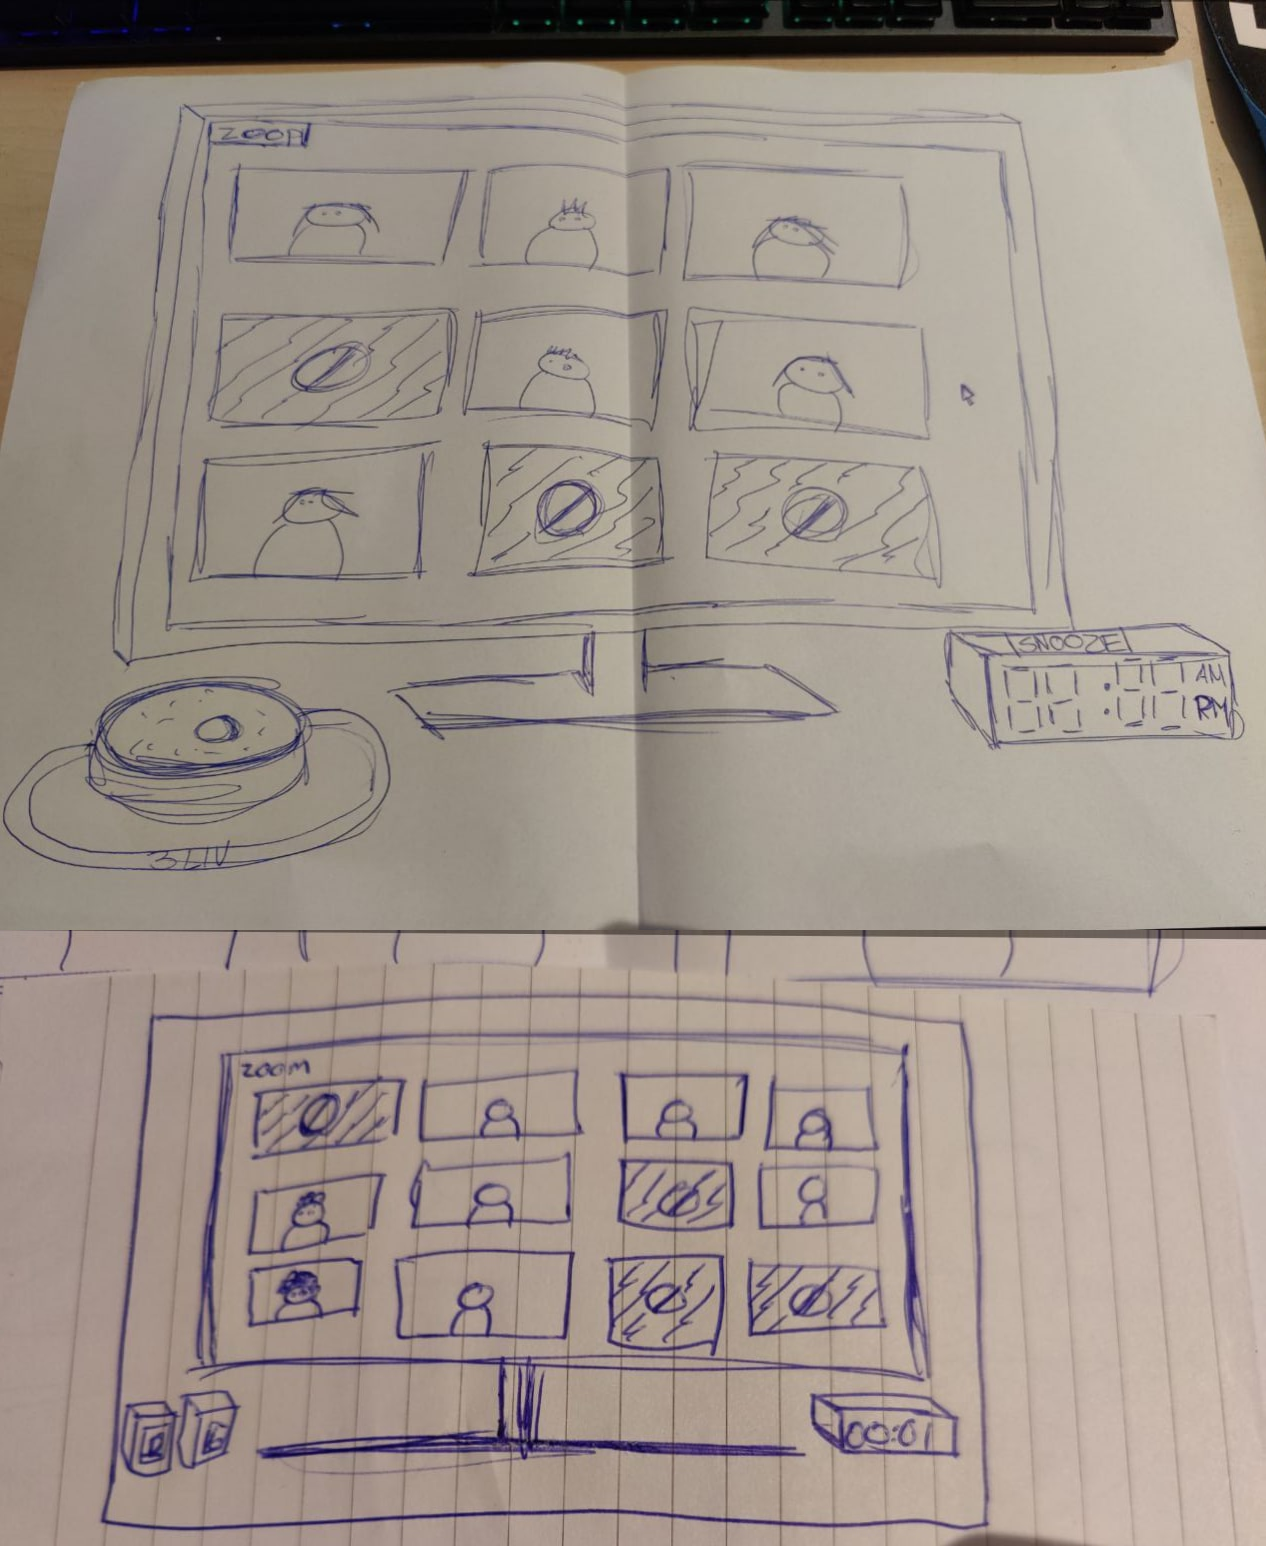 ZOOM
SNOOZE
AM
PM
3 LIV
ZOOM
00:01